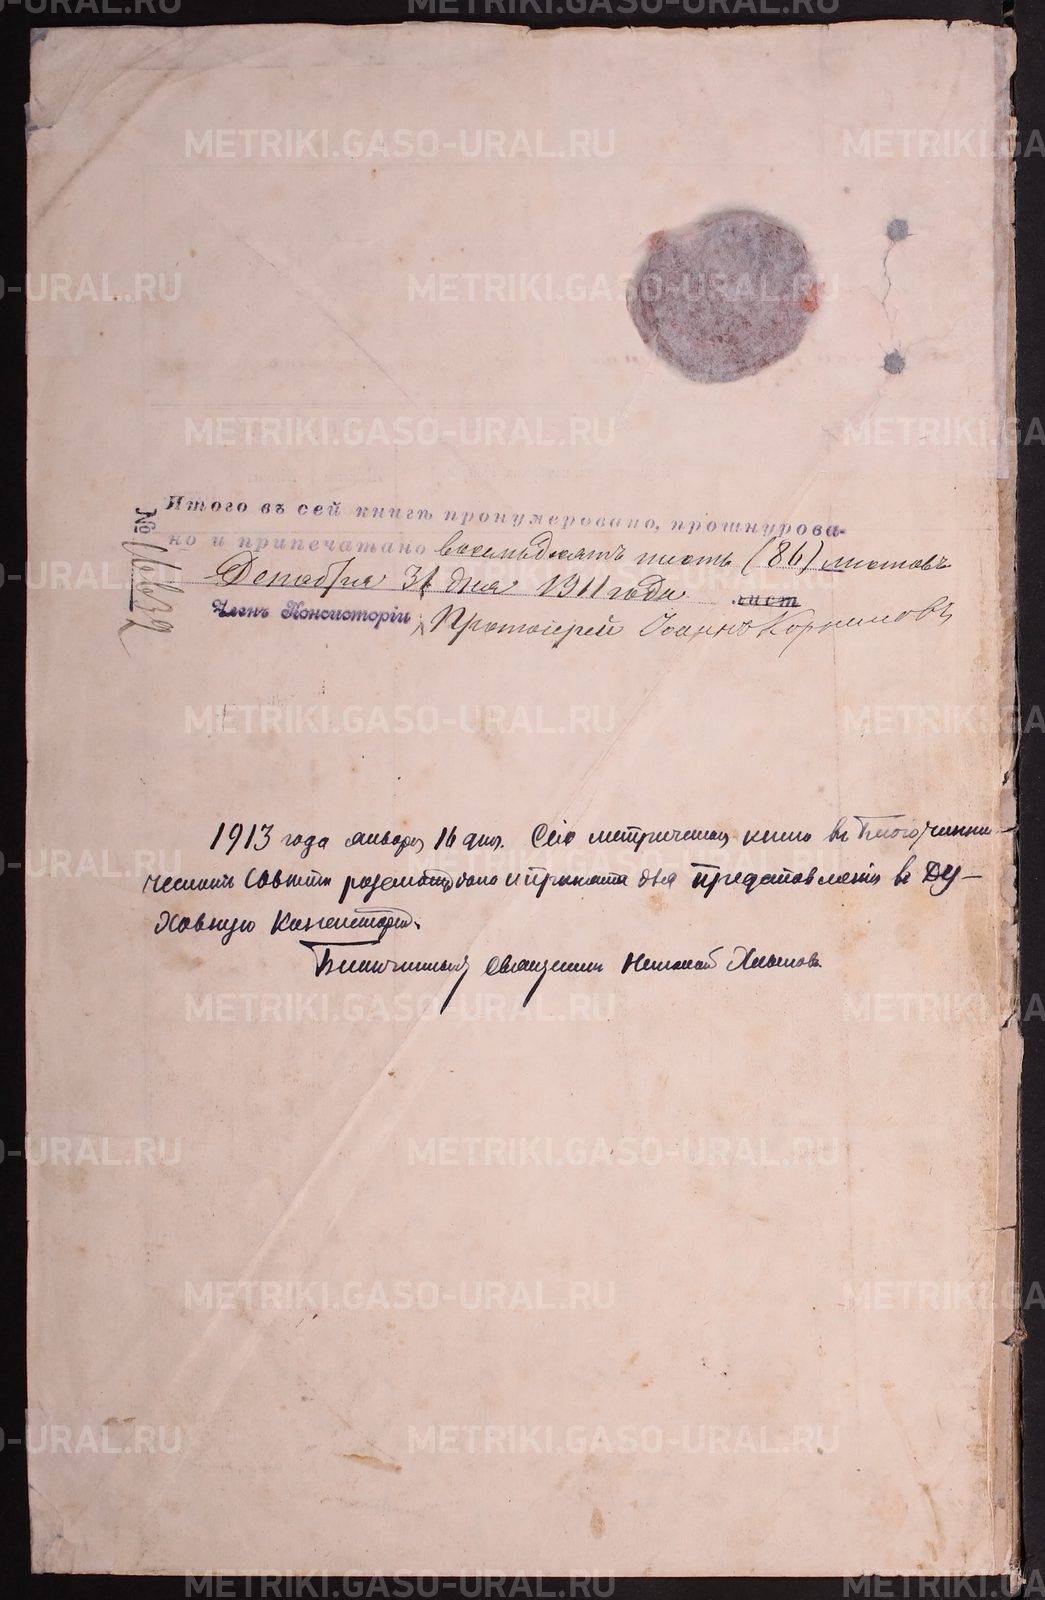 Итого въ сей книгѣ пронумеровано, прошнурова-
но и припечатано восемьдесятъ шесть (86) листовъ
Декабря 31 дня 1911 года. лист
Членъ Консисторіи, Протоіерей Іоаннъ Корниловъ
№
1913 года января 16 дня. Сія метрическая книга въ Благочинни-
ческомъ Совѣтѣ разсмотрѣна и принята для представленія въ Ду-
ховную Консисторію.
Благочинный Священникъ Николай Хлыновъ.
METRIKI.GASO-URAL.RU